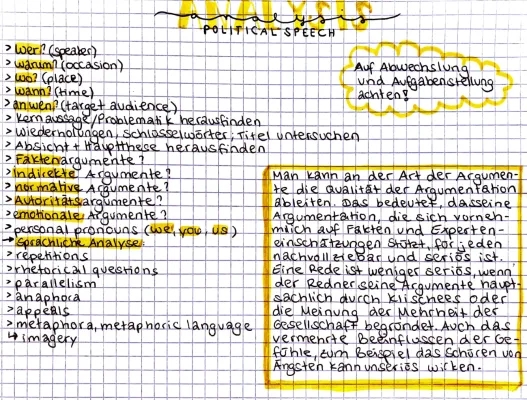 ANALYSIS
analysis
POLITICAL SPEECH
> wer? (speaker)
> warum? (occasion)
> wo? (place)
> wann? (time)
> an wen? (target audience)
> Kernaussage/Problematik herausfinden
> Wiederholungen, Schlüsselwörter; Titel untersuchen
> Absicht + Hauptthese herausfinden
> Faktenargumente?
> Indirekte Argumente?
> normative Argumente?
> Autoritätsargumente?
> emotionale Argumente?
> personal pronouns (we, you, us)
→ Sprachliche Analyse:
> repetitions
> rhetorical questions
> parallelism
> anaphora
> appeals
> metaphora, metaphoric language
↳ imagery
Auf Abwechslung
und Aufgabenstellung
achten!
Man kann an der Art der Argumen-
te die Qualität der Argumentation
ableiten. Das bedeutet, dass eine
Argumentation, die sich vorneh-
mlich auf Fakten und Experten-
einschätzungen stützt, für jeden
nachvollziebar und seriös ist.
Eine Rede ist weniger seriös, wenn
der Redner seine Argumente haupt-
sächlich durch Klischees oder
die Meinung der Mehrheit der
Gesellschaft begründet. Auch das
vermehrte Beeinflussen der Ge-
fühle, zum Beispiel das Schüren von
Ängsten kann unseriös wirken.